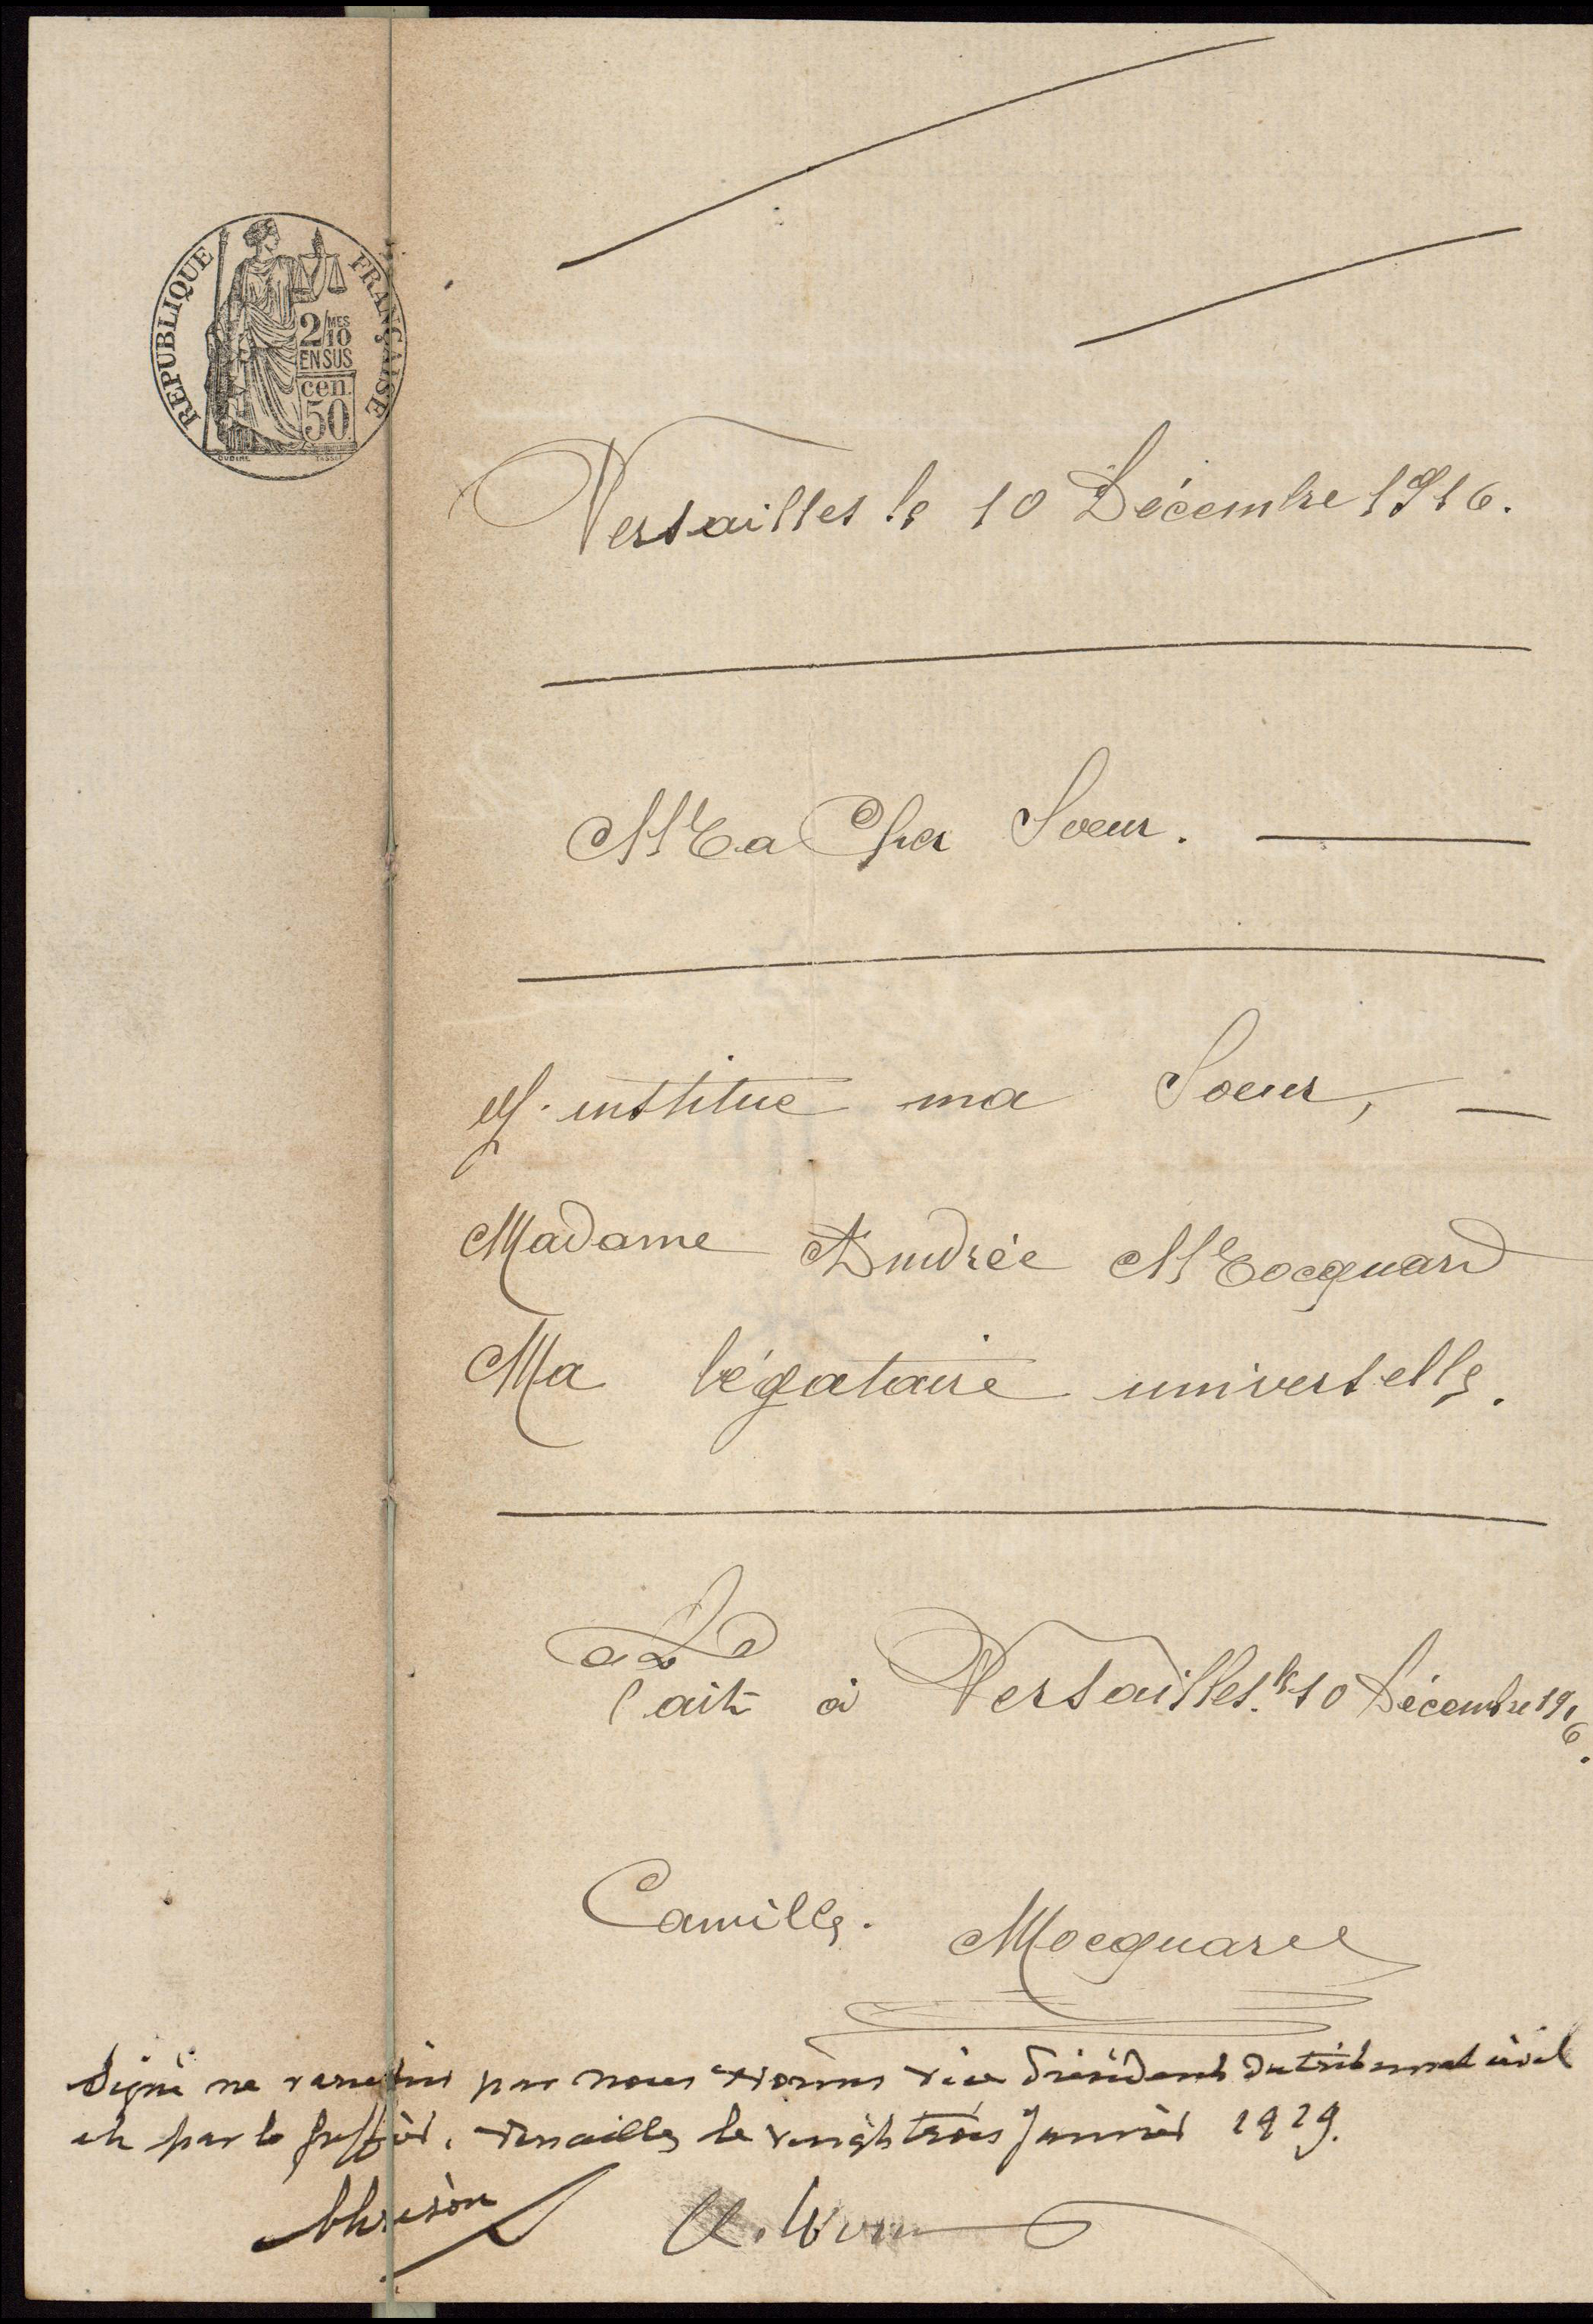 RÉPUBLIQUE FRANÇAISE
2/10 MES
EN SUS
cen.
50
OUDINÉ TASSET
Versailles le 10 Décembre 1916.
Ma Cher Soeur.
J. institue ma Soeur,
Madame Andrée Mocquard
Ma légataire universelle.
Fait à Versailles. le 10 Décembre 1916.
Camille. Mocquard
Signé ne varietur par nous Worms vice Président du tribunal civil
et par le greffier. Versailles le vingt trois Janvier 1919.
A. Worms